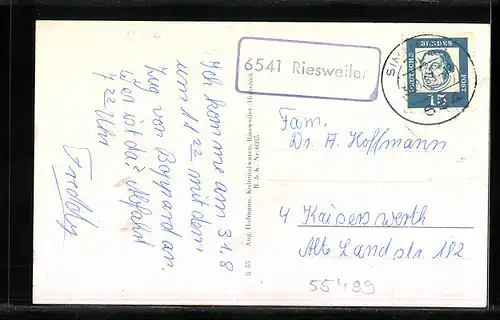 6541 Riesweiler
DEUTSCHE BUNDES POST
15
Ich komme am 31.8
um 11 22 mit dem
Zug von Boppard an.
ist das Abfahrt
7 22 Uhr
Aug. Hofmann, Kolonialwaren, Riesweiler, Hunsrück
R 55 B. & K. Nr. 6035
Fam.
Dr. A. Hoffmann
4 Kaiserswerth
Alte Landstr. 182
55499